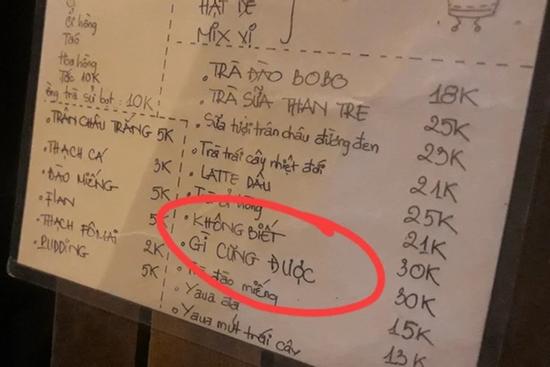 HẠT DẺ
MIX VỊ
ổi hồng
Táo
Hoa hồng
Táo 10K
ống trà sủi bọt : 10K
. TRÂN CHÂU TRẮNG 5K
. THẠCH CÁ 3K
. ĐÀO MIẾNG 5K
. FLAN 5K
. THẠCH FÔMAI 2K
. PUDDING 5K
. TRÀ ĐÀO BOBO 18K
. TRÀ SỮA THAN TRE 25K
. Sữa tươi trân châu đường đen 23K
. Trà trái cây nhiệt đới 21K
. LATTE DÂU 25K
. Trà ổi hồng 21K
. KHÔNG BIẾT 30K
. GÌ CŨNG ĐƯỢC 30K
. Trà đào miếng 15K
. Yaua đá 13K
. Yaua mứt trái cây